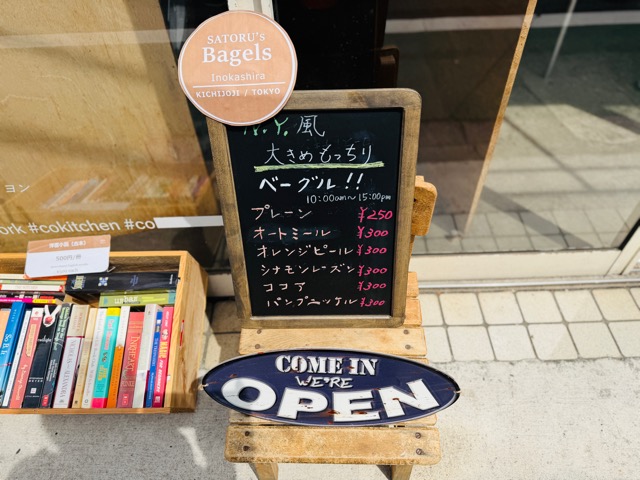 SATORU's
Bagels
Inokashira
KICHIJOJI / TOKYO
N.Y.風
大きめもっちり
ベーグル!!
10:00am〜15:00pm
プレーン ¥250
オートミール ¥300
オレンジピール ¥300
シナモンレーズン ¥300
ココア ¥300
パンプニッケル ¥300
COME IN
WE'RE
OPEN
ヨン
ork #cokitchen #co